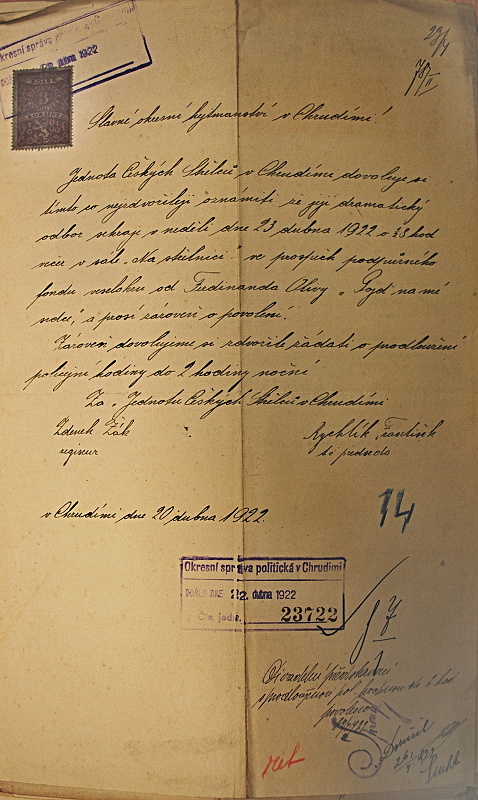 Okresní správa
dubna 1922
KOLEK
KORUNY
23/4
78/II
Slavné okresní hejtmanství v Chrudimi!
Jednota Českých Střelců v Chrudimi dovoluje si
tímto co nejzdvořileji oznámiti že její dramatický
odbor sehraje v neděli dne 23 dubna 1922 o hod
večer v sále „Na střelnici" ve prospěch podpůrného
fondu veselohru od Ferdinanda Olivy „Pojď na mé
srdce", a prosí zároveň o povolení.
Zároveň dovolujeme si zdvořile žádati o prodloužení
policejní hodiny do 2 hodiny noční
Za „Jednotu Českých Střelců v Chrudimi
Zdenek Žák
režiseur
Rychlík František
předseda
v Chrudimi dne 20 dubna 1922.
14
Okresní správa politická v Chrudimi
DOŠLO DNE 22. dubna 1922
Čís. jedn. 23722
Divadelní představení
s prodlouženou pol. hod.
povoleno